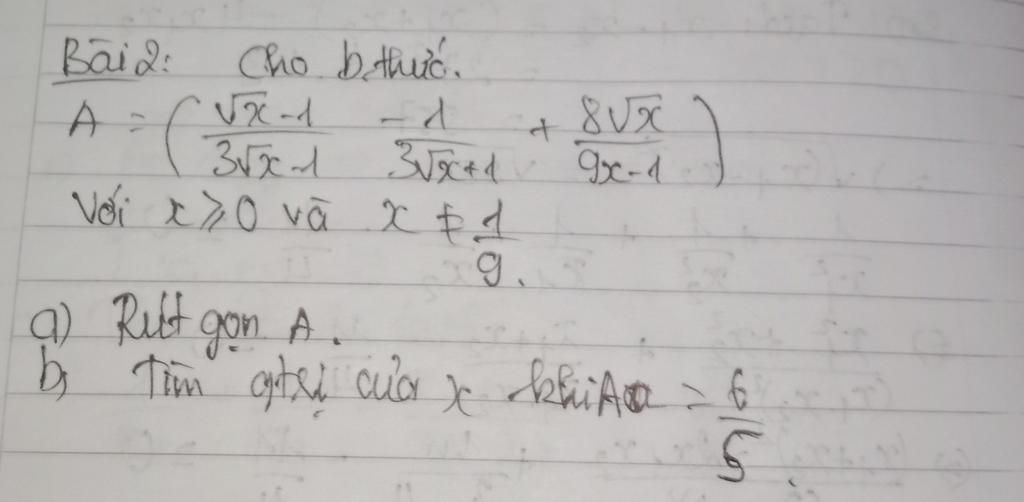 Bài 2: Cho b.thức.
A = ( \frac{\sqrt{x}-1}{3\sqrt{x}-1} - \frac{1}{3\sqrt{x}+1} + \frac{8\sqrt{x}}{9x-1} )
Với x ⩾ 0 và x ≠ \frac{1}{9}.
a) Rút gọn A.
b, Tìm gtrị của x khi A = \frac{6}{5}.